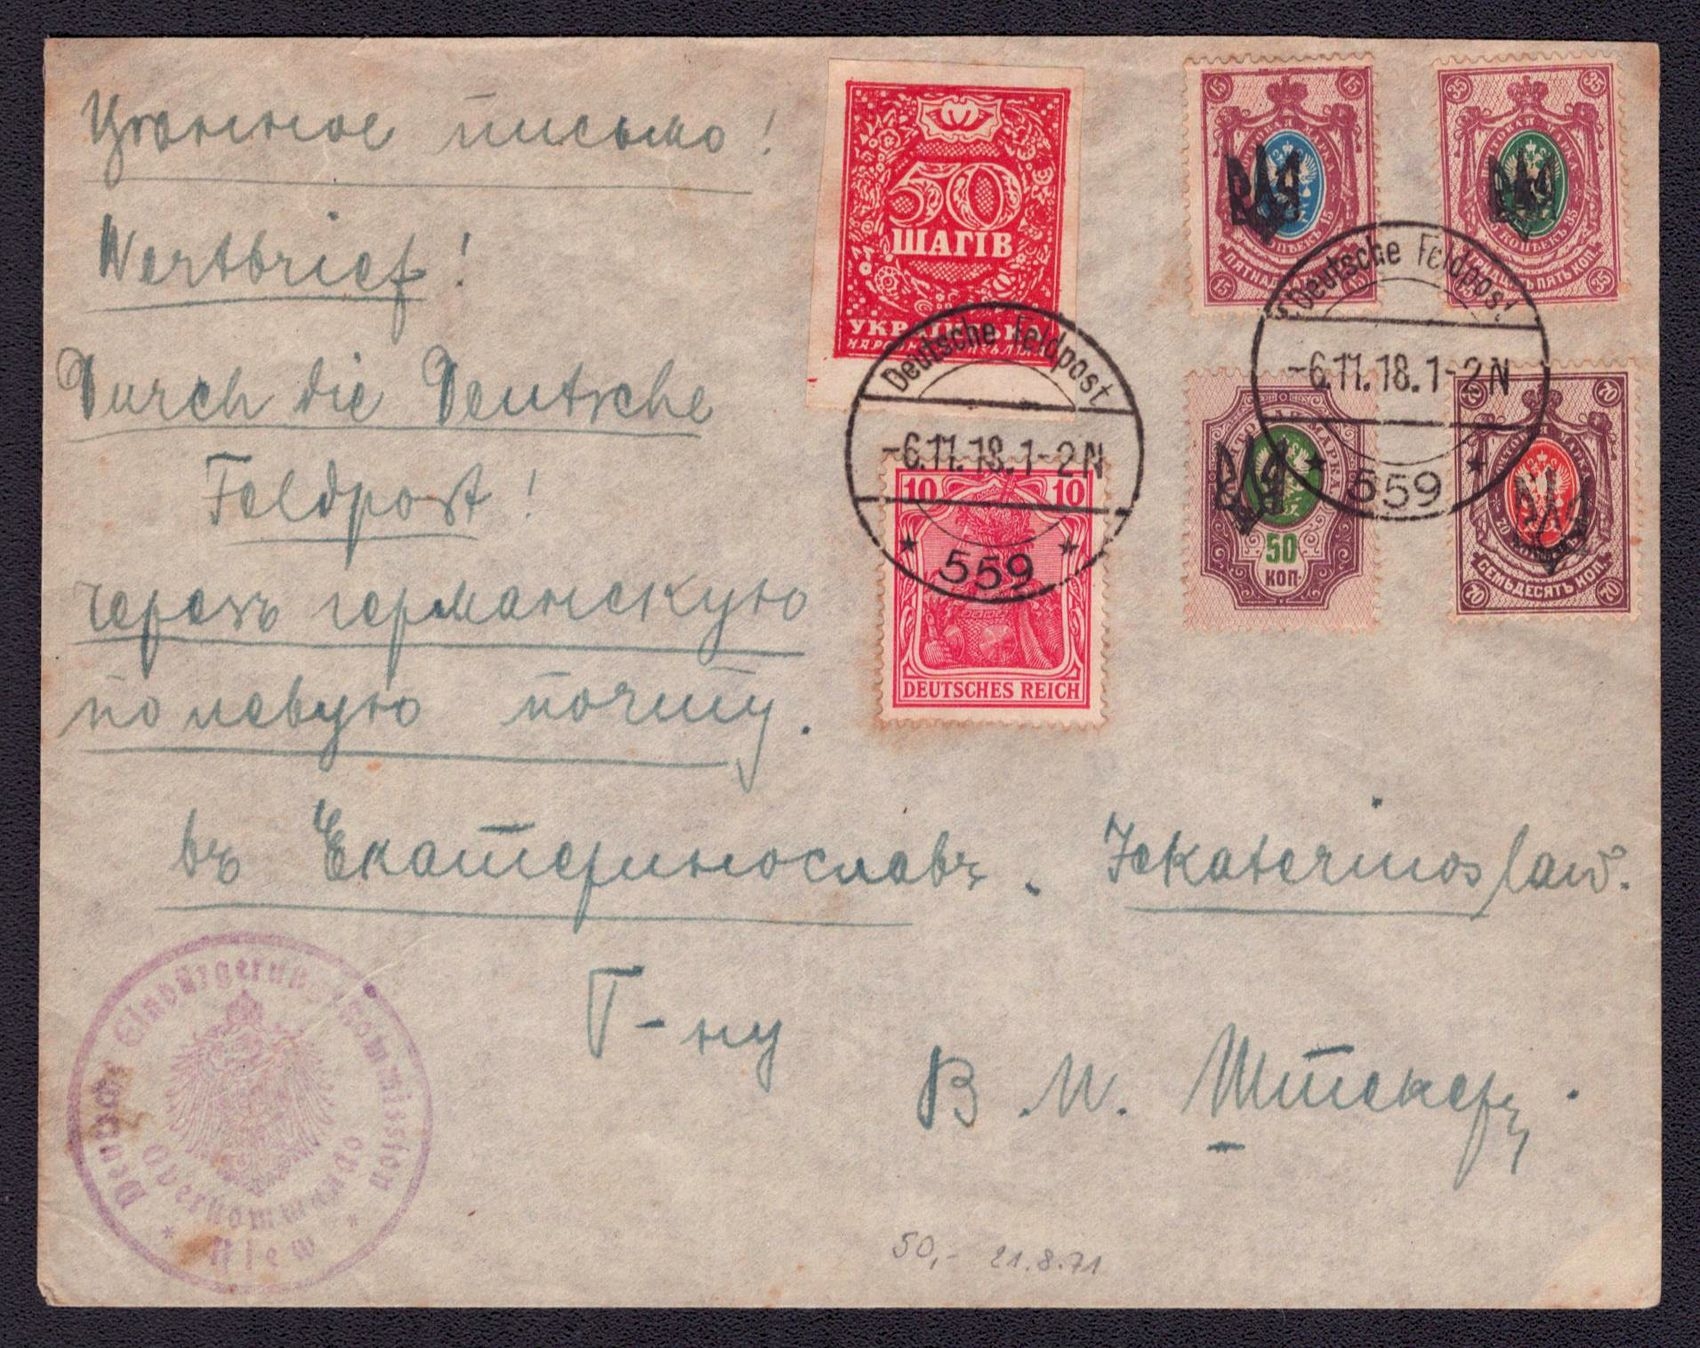 Цѣнное письмо!
Wertbrief!
Durch die Deutsche
Feldpost!
черезъ германскую
полевую почту.
въ Екатеринославъ. Jekaterinoslaw.
Г-ну
В. М. Штекеръ.
50 ШАГІВ
УКРАЇНСЬКА
Deutsche Feldpost
-6.11.18.1-2N
* 559 *
10 10
DEUTSCHES REICH
15 15
15 15
35 35
35 35
S. Deutsche Feldpost
-6.11.18.1-2N
* 559 *
50
КОП
70 70
СЕМЬДЕСЯТЬ КОП.
70 70
Deutsche Einbürgerungskommission
Oberkommando
* Kiew *
50,- 21.8.71